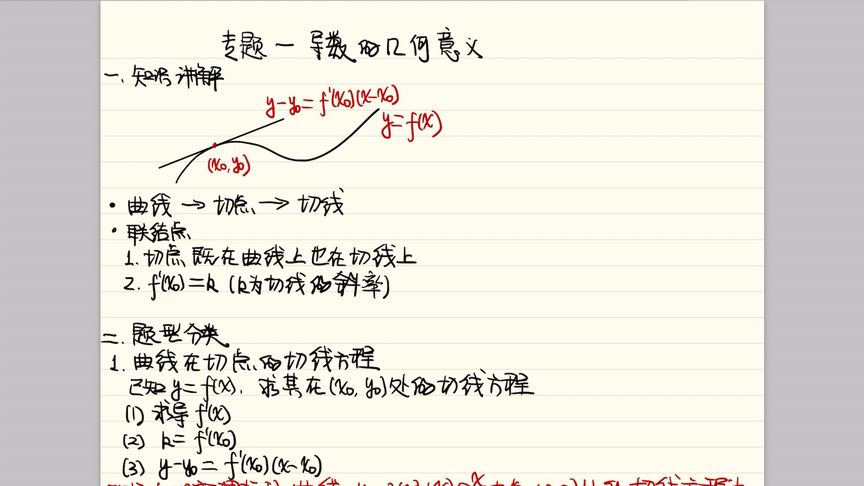 专题一 导数的几何意义
一.知识讲解
y-y₀=f'(x₀)(x-x₀)
y=f(x)
(x₀,y₀)
• 曲线 → 切点 → 切线
• 联结点
1.切点既在曲线上也在切线上
2. f'(x₀)=k (k为切线的斜率)
二.题型分类
1.曲线在切点的切线方程
已知y=f(x),求其在(x₀,y₀)处的切线方程
(1) 求导f'(x)
(2) k=f'(x₀)
(3) y-y₀=f'(x₀)(x-x₀)